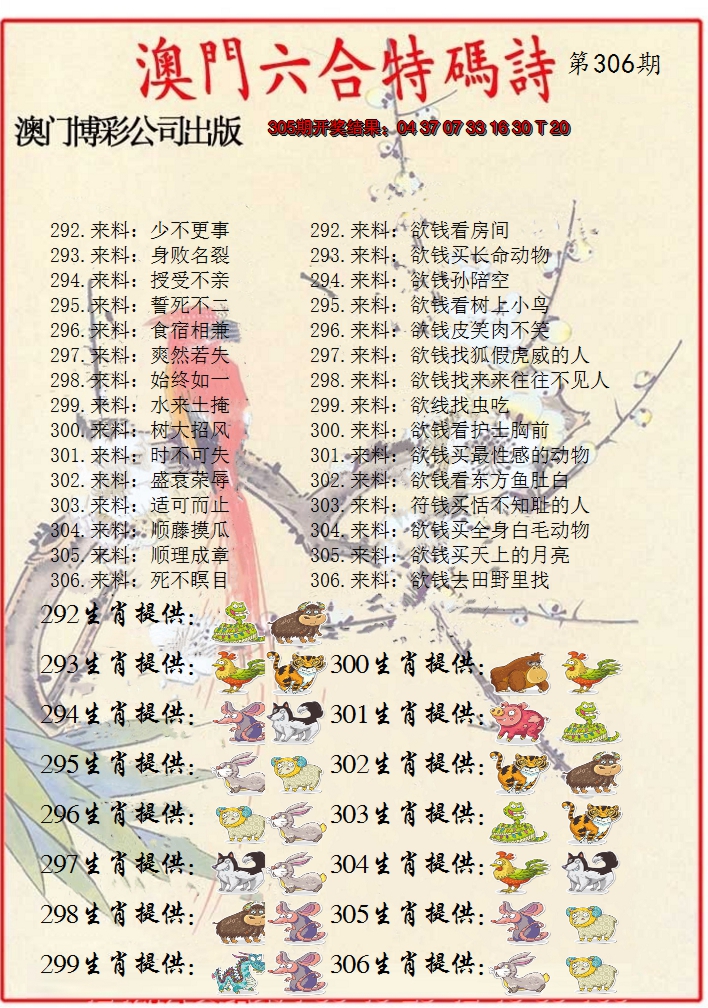 澳門六合特碼詩 第306期
澳门博彩公司出版 305期开奖结果：04 37 07 33 16 30 T 20
292.来料：少不更事 292.来料：欲钱看房间
293.来料：身败名裂 293.来料：欲钱买长命动物
294.来料：授受不亲 294.来料：欲钱孙陪空
295.来料：誓死不二 295.来料：欲钱看树上小鸟
296.来料：食宿相兼 296.来料：欲钱皮笑肉不笑
297.来料：爽然若失 297.来料：欲钱找狐假虎威的人
298.来料：始终如一 298.来料：欲钱找来来往往不见人
299.来料：水来土掩 299.来料：欲线找虫吃
300.来料：树大招风 300.来料：欲钱看护士胸前
301.来料：时不可失 301.来料：欲钱买最性感的动物
302.来料：盛衰荣辱 302.来料：欲钱看东方鱼肚白
303.来料：适可而止 303.来料：符钱买恬不知耻的人
304.来料：顺藤摸瓜 304.来料：欲钱买全身白毛动物
305.来料：顺理成章 305.来料：欲钱买天上的月亮
306.来料：死不瞑目 306.来料：欲钱去田野里找
292生肖提供：
293生肖提供： 300生肖提供：
294生肖提供： 301生肖提供：
295生肖提供： 302生肖提供：
296生肖提供： 303生肖提供：
297生肖提供： 304生肖提供：
298生肖提供： 305生肖提供：
299生肖提供： 306生肖提供：